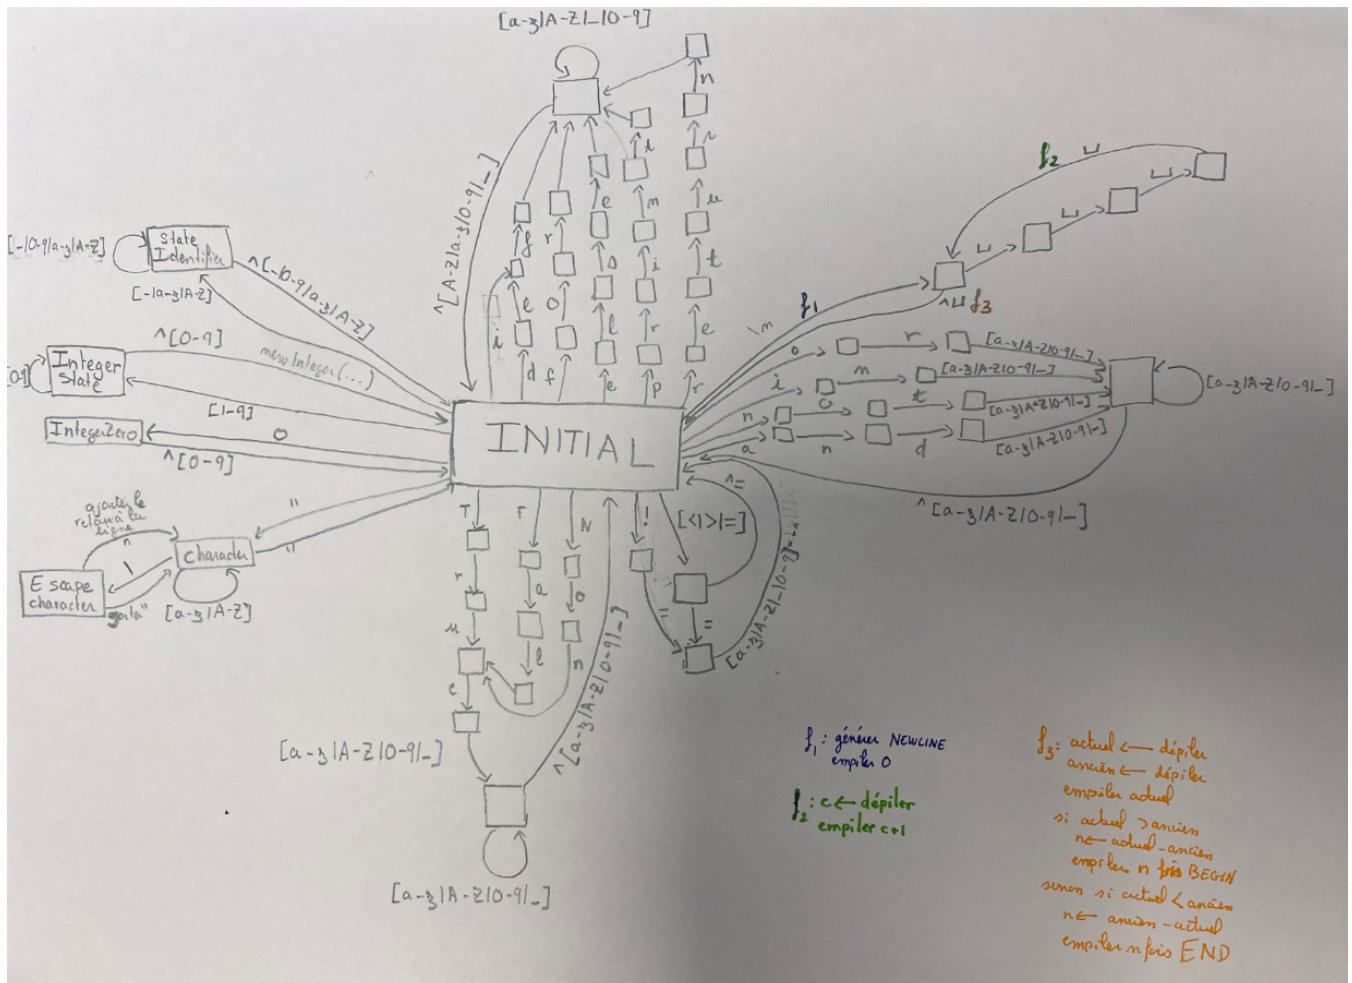 [a-z|A-Z|_|0-9]
n
i
u
t
e
r
i
n
i
r
p
e
s
l
e
r
o
f
f
e
d
i
^[A-Z|a-z|0-9|_]
[-|0-9|a-z|A-Z]
State
Identifier
^[-|0-9|a-z|A-Z]
[-|a-z|A-Z]
^[0-9]
Integer
State
[0-9]
new Integer(...)
[1-9]
IntegerZero
0
^[0-9]
ajouter le
retour à la
ligne
n
"
"
character
\
Escape
character
[a-z|A-Z]
INITIAL
f2
␣
␣
␣
␣
f1
\n
^␣ f3
o
r
[a-z|A-Z|0-9|_]
i
n
[a-z|A-Z|0-9|_]
n
o
t
[a-z|A-Z|0-9|_]
a
n
d
[a-z|A-Z|0-9|_]
[a-z|A-Z|0-9|_]
^[a-z|A-Z|0-9|_]
T
r
u
e
F
a
l
N
o
n
!
=
[<|>|=]
^=
=
[a-z|A-Z|_|0-9]
^[a-z|A-Z|0-9|_]
[a-z|A-Z|0-9|_]
[a-z|A-Z|0-9|_]
f1 : générer NEWLINE
empiler 0
f2 : c ← dépiler
empiler c+1
f3 : actuel ← dépiler
ancien ← dépiler
empiler actuel
si actuel > ancien
n ← actuel - ancien
empiler n fois BEGIN
sinon si actuel < ancien
n ← ancien - actuel
empiler n fois END